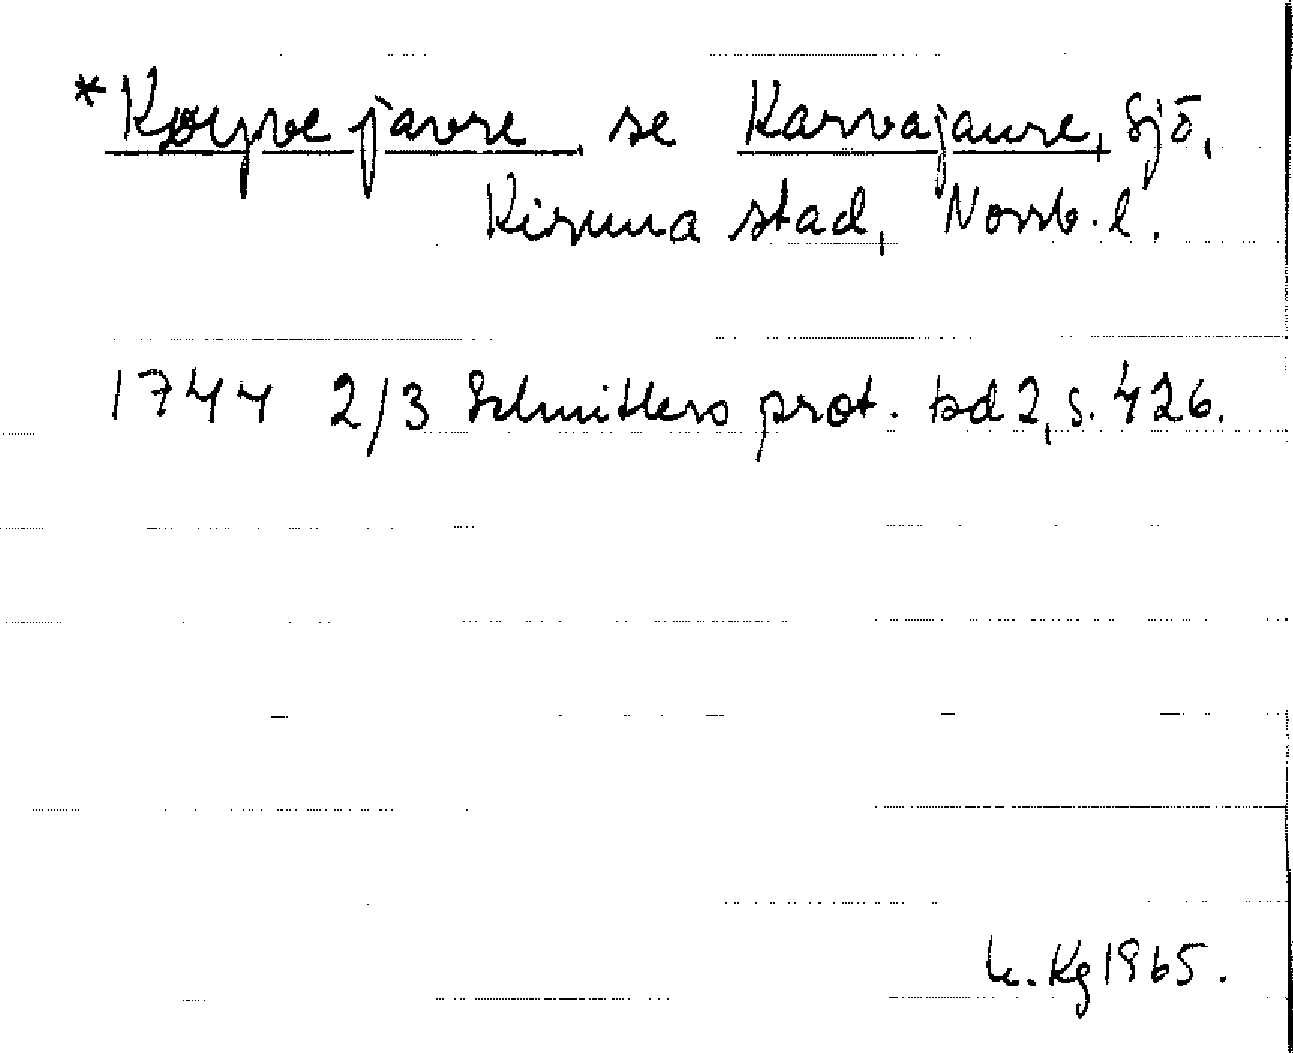 *Køyrve javre se Karvajaure, Sjö,
Kiruna stad, Norrb. l.
1744 2/3 Schnitlers prot. bd 2, s. 426.
Kg 1965.